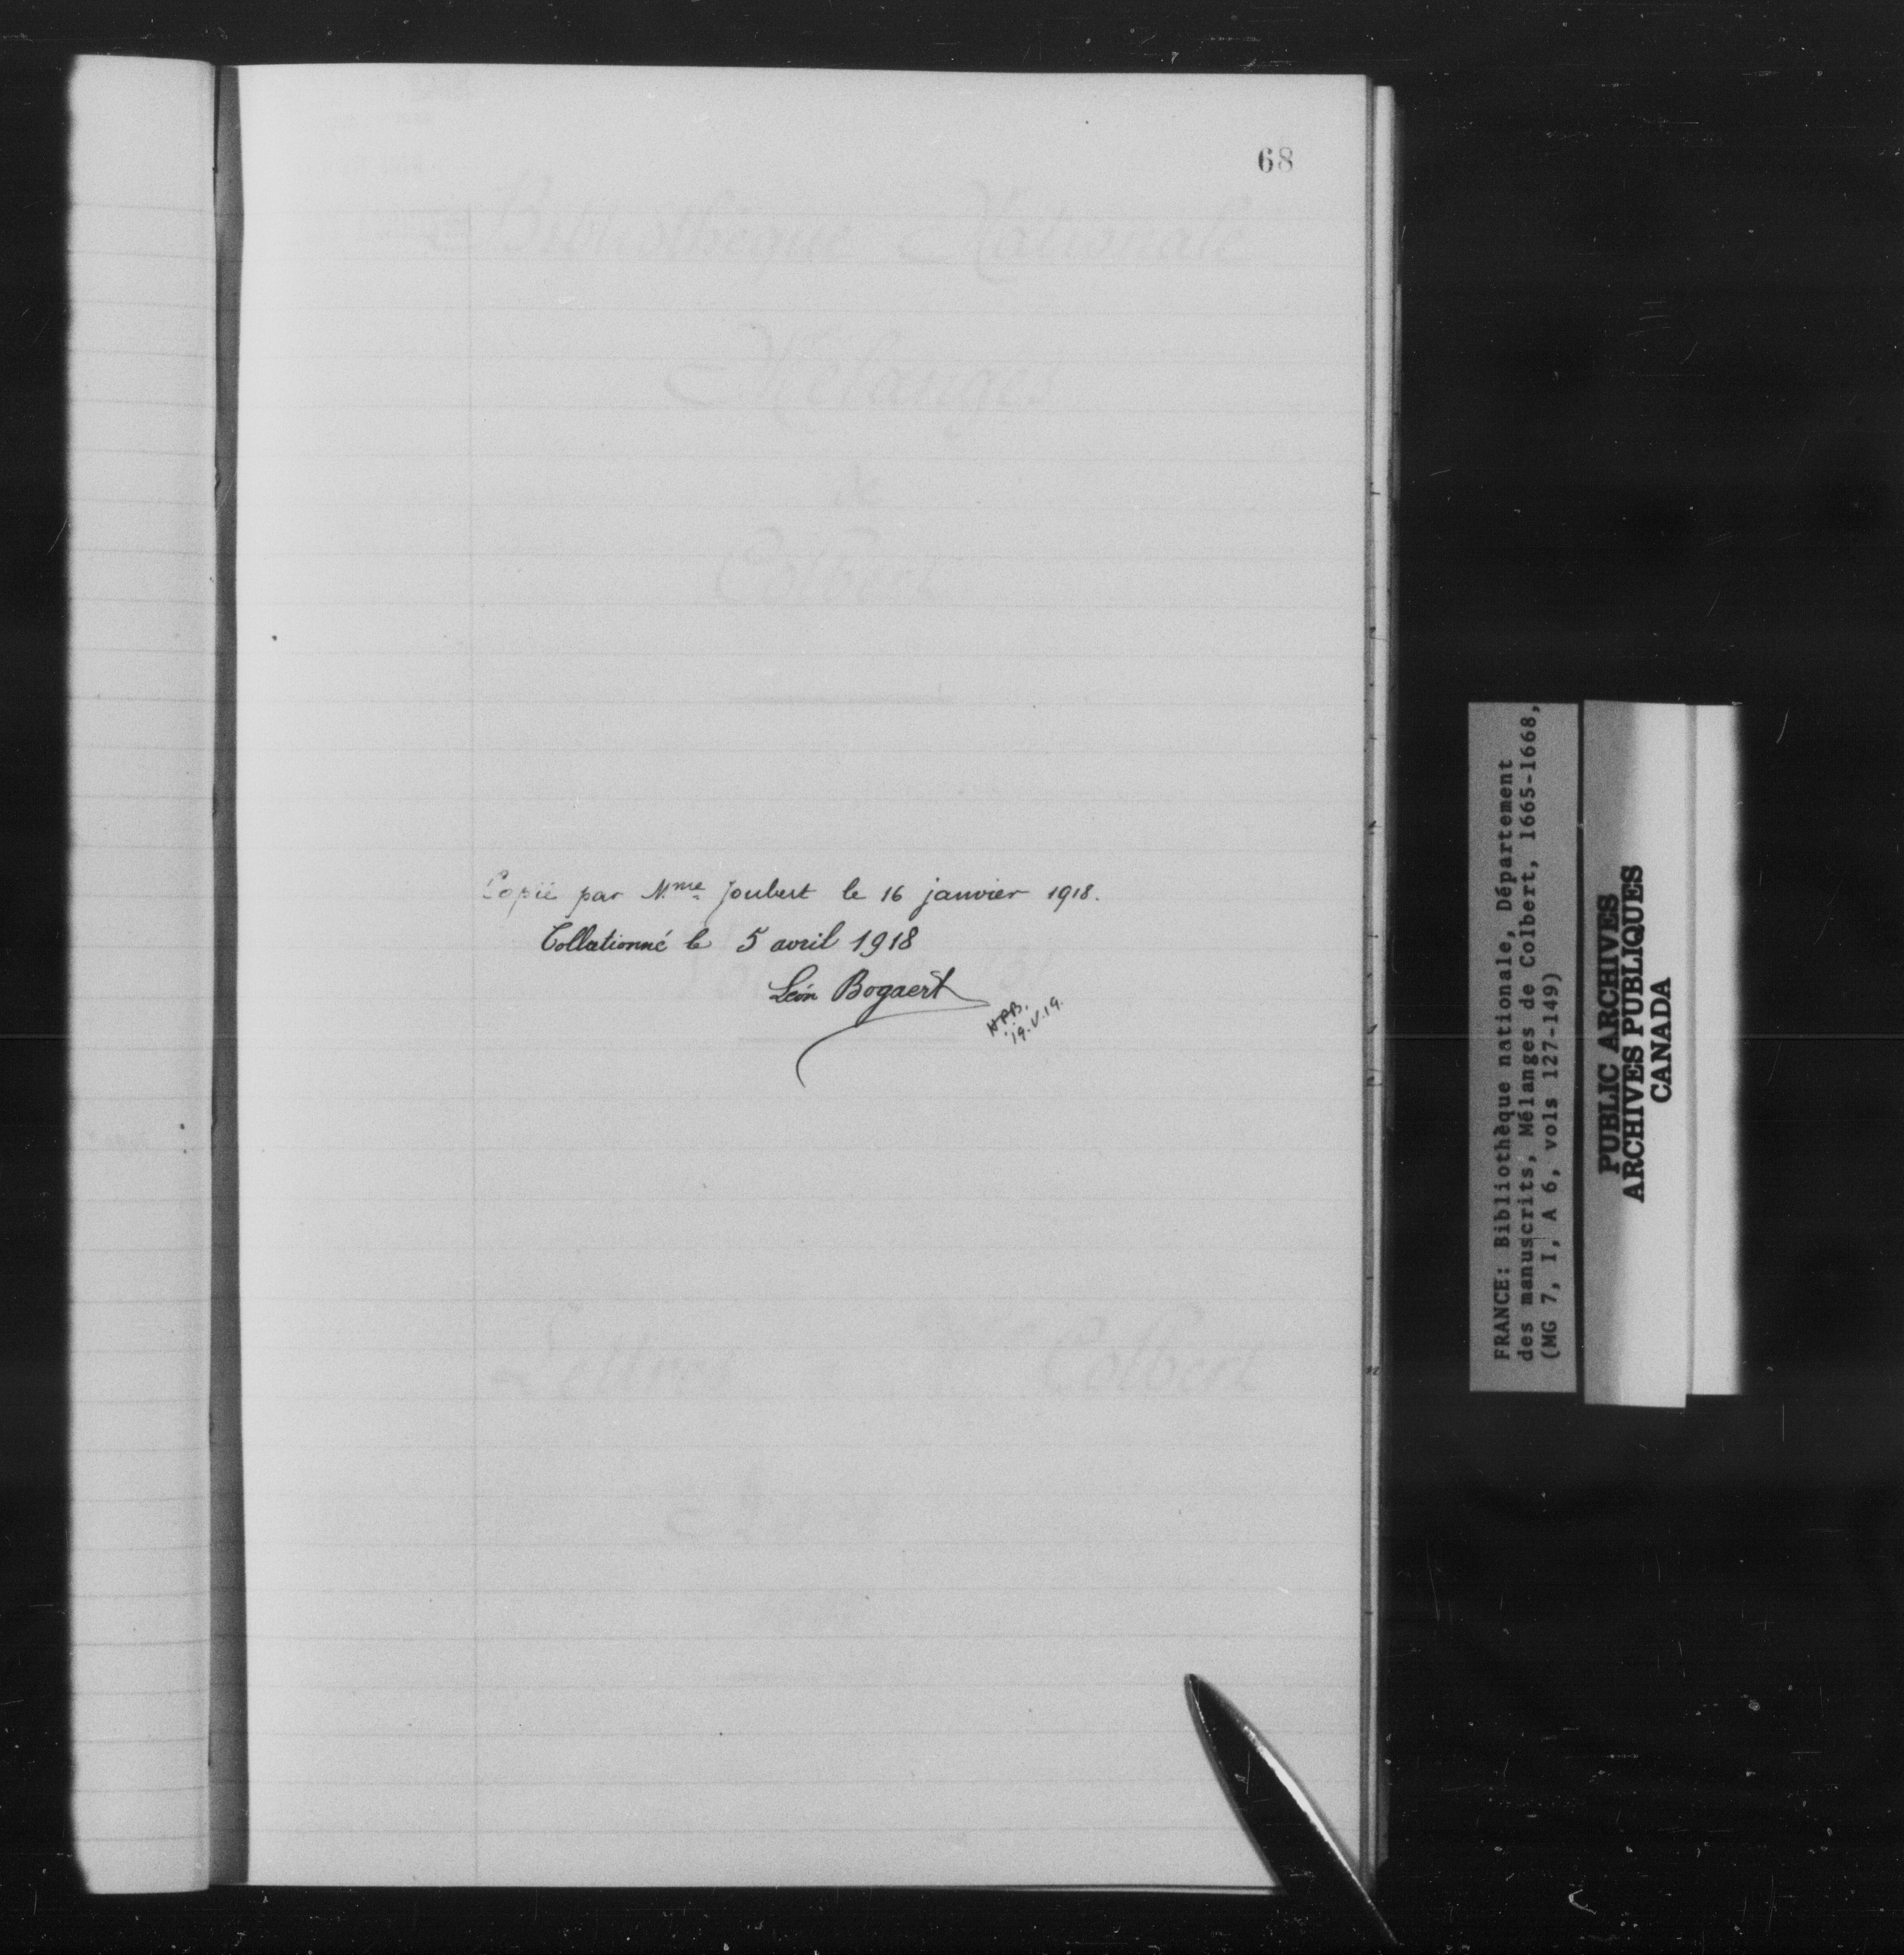 68
Bibliothèque Nationale
Mélanges
de
Colbert
Copié par Mme Joubert le 16 janvier 1918.
Collationné le 5 avril 1918
Léon Bogaert
HPB.
19.V.19.
Lettres Colbert
FRANCE: Bibliothèque nationale, Département
des manuscrits, Mélanges de Colbert, 1665-1668,
(MG 7, I, A 6, vols 127-149)
PUBLIC ARCHIVES
ARCHIVES PUBLIQUES
CANADA